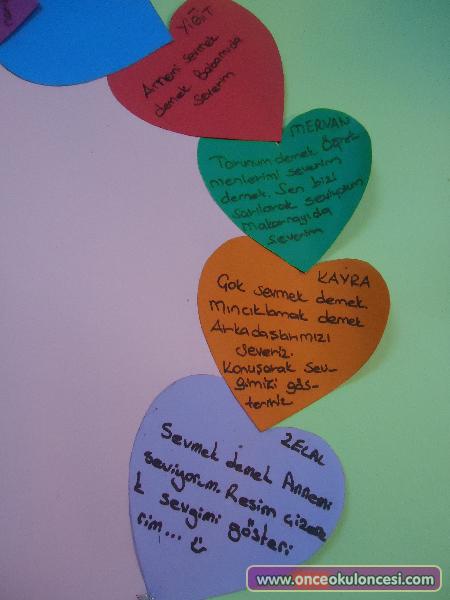 YİĞİT
Anneni sevmek
demek Babamıda
severim
MERVAN
Torunum demek Öğret
menlerimi severim
demek. Sen bizi
sarılarak seviyorsun
Makarnayıda
severim
KAYRA
Çok sevmek demek.
Mıncıklamak demek
Arkadaşlarımızı
severiz.
Konuşarak sev-
gimizi gös-
teririz
ZELAL
Sevmek demek Annemi
seviyorum. Resim çizere
k sevgimi gösteri
rim...
www.onceokuloncesi.com